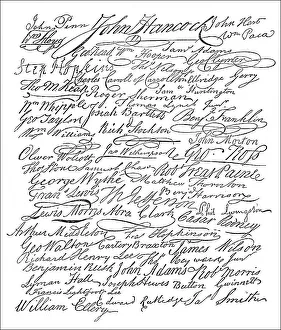 John Penn John Hancock John Hart
Wm Floyd Wm Paca
Geo Read Wm Hooper Saml Adams
Step Hopkins Geo Clymer
Charles Carroll of Carrollton Elbridge Gerry
Tho M:Kean Roger Sherman Saml Huntington
Wm Whipple Thomas Lynch Junr
Geo Taylor Josiah Bartlett Benj Franklin
Wm Williams Rich Stockton
John Morton
Oliver Wolcott Jno Witherspoon Geo Ross
Tho Stone Samuel Chase Robt Treat Paine
George Wythe Matthew Thornton
Fran Lewis Th Jefferson Benj Harrison
Lewis Morris Abra Clark Caesar Rodney
Arthur Middleton Fras Hopkinson
Geo Walton Carter Braxton James Wilson
Richard Henry Lee Tho Heyward Junr
Benjamin Rush John Adams Robt Morris
Lyman Hall Joseph Hewes Button Gwinnett
Francis Lightfoot Lee
William Ellery Edward Rutledge Jas Smith